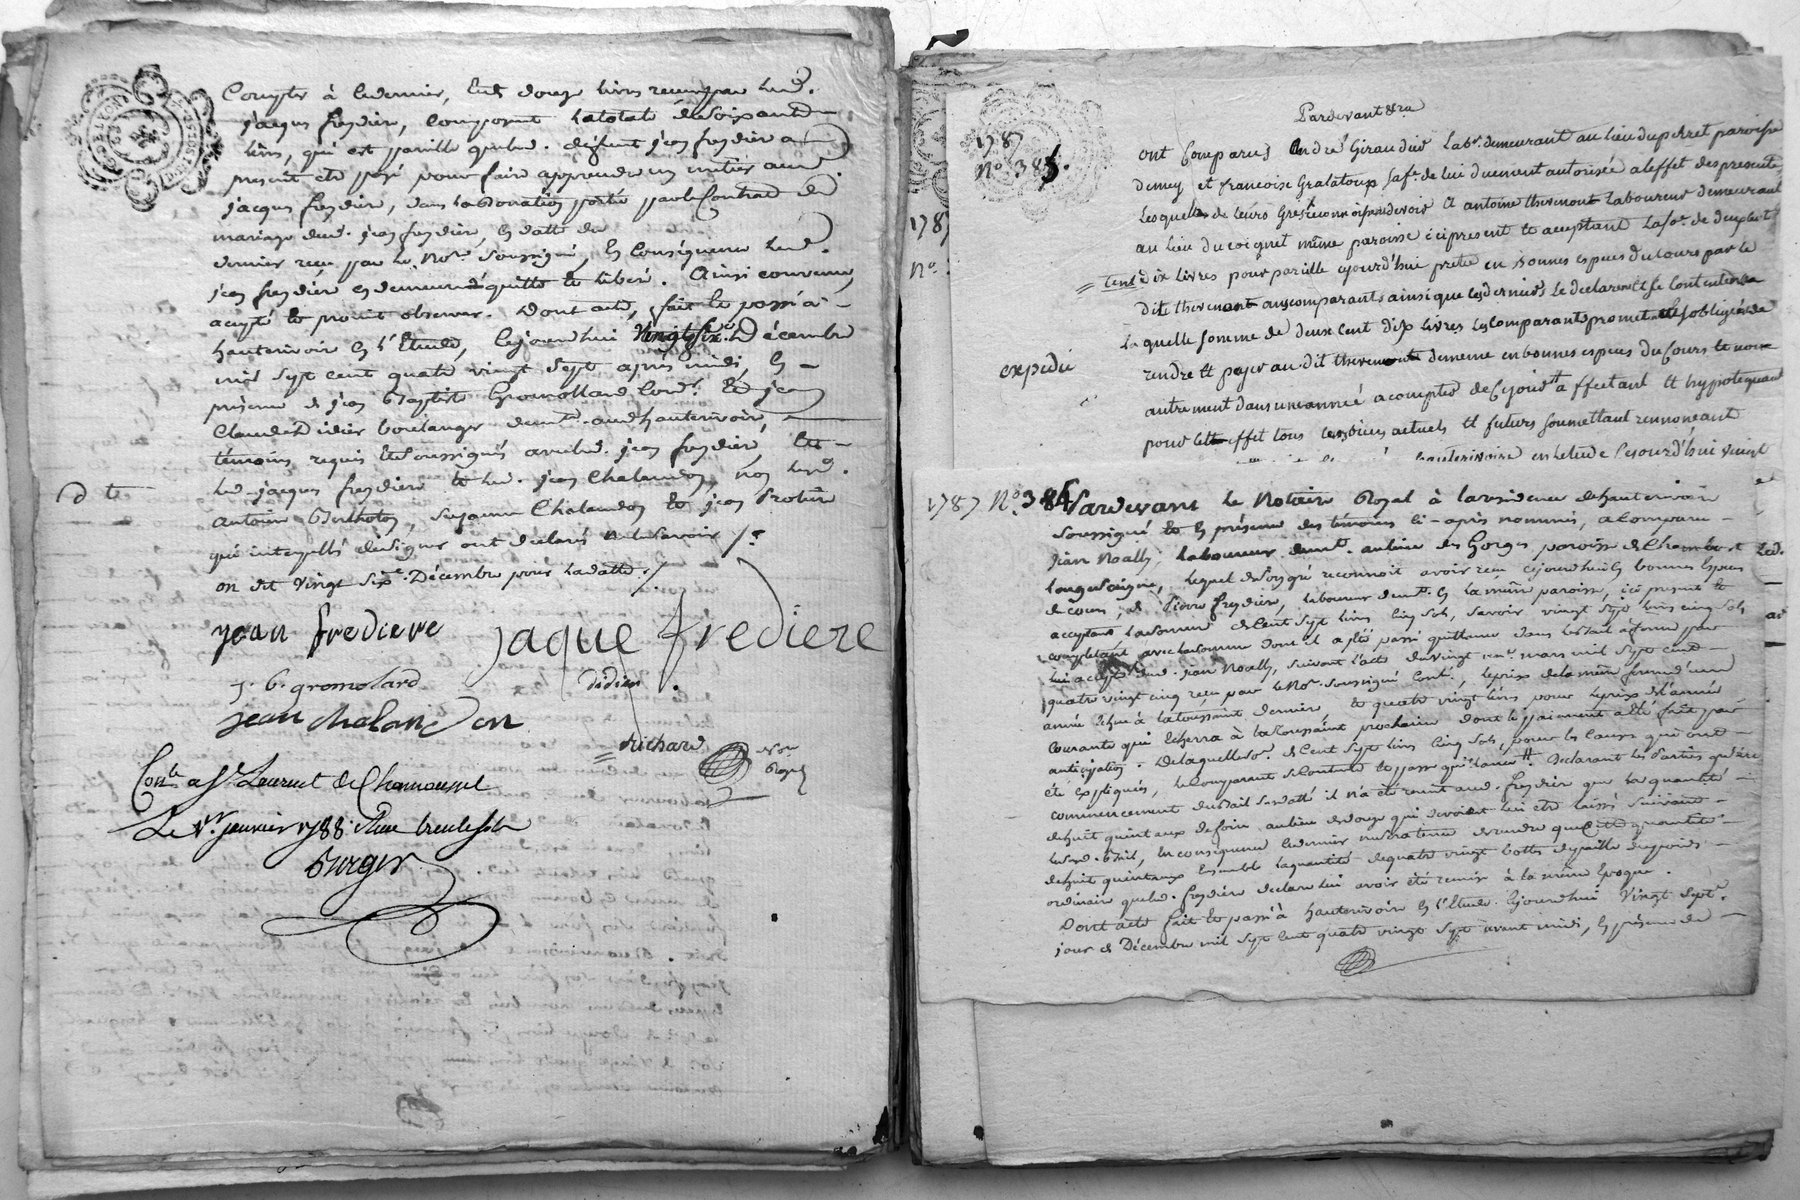 Compter à ce dernier, les douze livres reçues par led.
jacques freydier, composent la totale de soixante
livres, qui est pareille que led. défunt jean freydier a
promis été payé pour faire apprendre un métier aud.
jacques freydier, dans la donation portée par le Contrat de
mariage dud. jean freydier, en datte du
dernier reçu par le No.re soussigné, en conséquence led.
jean freydier en demeure quitte et libéré. Ainsi convenu,
accepté et promit observer. Dont acte, fait et passé à
hauterivoir en l'Etude, cejourd'hui vingt six.e Décembre
mil sept cent quatre vingt sept après midi, en
présence de jean Baptiste Gromollard Cord.r et jean
Claude Didier boulanger demt. aud. hauterivoir,
témoins requis et soussignés avec led. jean freydier,
led. jacques freydier et led. jean Chalandon, non led.
antoine Bertholon, suzanne Chalandon et jean Protière
qui interpellés de signer ont déclaré ne le savoir /.
on dit vingt six.e Décembre pour la datte /.
jean frediere jaque frediere
j. b. gromolard didier
jean chalandon
Richard No.re Royal
Con.lé a St. Laurent de Chamousset
Le 1.er janvier 1788. Reçu trente sols
Burger
1787
N.o 385.
expédié
Pardevant &ra
ont Comparus André Giraudier lab.r demeurant au lieu du perret paroisse
demey et francoise Gralatoup sa fe. de lui duement autorisée a leffet des presentes
Lesquels de leurs Gres reconnoissent devoir A antoine thevenont laboureur demeurant
au lieu du coignet même paroisse ici present et acceptant la so.e de deux
cent dix livres pour pareille cejourd'hui pretée en bonnes especes du cours par le
dit thevenont aux comparants ainsi que ces derniers le declarent et se contentent
La quelle somme de deux cent dix livres les comparants promettent et s'obligent de
rendre et payer au dit thevenont de meme en bonnes especes du Cours et non
autrement dans une année a compter de ce jour affectant et hypotequant
pour cet effet tous les biens actuels et futurs soumettant renonceant
hauterivoire en letude Cejourd'hui vingt
1787
N.o
1787 N.o 386 Pardevant le Notaire Royal à la résidence de hauterivoir
soussigné et en présence des témoins ci-après nommés, a Comparu
Jean Noally, laboureur demt. au lieu des Gorges paroisse de Chambost
Longesaigne, lequel de son gré reconnoit avoir reçu cejourd'hui en bonnes especes
de cours, de Pierre freydier, laboureur demt. en la même paroisse, ici présent et
acceptant la somme de Cent sept livres cinq sols, savoir vingt sept livres cinq sols
complétant avec la somme dont il a été passé quittance dans le bail à ferme par
lui accepté dud. Jean Noally, suivant l'acte du vingt un.e mars mil sept cent
quatre vingt cinq reçu par le No.re soussigné Conl., le prix de la même ferme d'une
année échue à la toussaint dernier et quatre vingt livres pour le prix de l'année
courante qui échera à la toussaint prochaine dont le paiement a été fait par
anticipation. De laquelle so.e de Cent sept livres Cinq sols, pour les causes qui ont
été expliqués, le comparant se contente et passe quittance. Déclarant les parties qu'au
commencement du bail susdatté il n'a été remit aud. freydier que la quantité
de huit quintaux de foin au lieu de douze qui devoient lui être laissé suivant
led. bail, en conséquence ce dernier ne sera tenu de rendre que cette quantité
de huit quintaux Ensemble la quantité de quatre vingt bottes de paille du poids
ordinaire que led. freydier déclare lui avoir été remise à la même Epoque.
Dont acte fait et passé à hauterivoir en l'Etude. Cejourd'hui vingt sept.e
jour de Décembre mil sept cent quatre vingt sept avant midi, en présence de